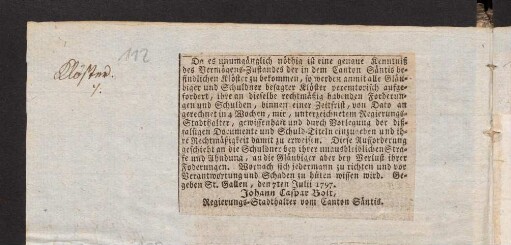 112
Klöster.
Da es unumgänglich nöthig ist eine genaue Kenntniß
des Vermögens-Zustandes der in dem Canton Säntis be-
findlichen Klöster zu bekommen, so werden anmit alle Gläu-
biger und Schuldner besagter Klöster peremtorisch aufge-
fordert, ihre an dieselbe rechtmäßig habenden Forderun-
gen und Schulden, binnen einer Zeitfrist, von Dato an
gerechnet in 4 Wochen, mir, unterzeichnetem Regierungs-
Stadthalter, gewissenhaft und durch Vorlegung der diß-
fälligen Documente und Schuld-Titeln einzugeben und ih-
re Rechtmäßigkeit damit zu erweisen. Diese Aufforderung
geschieht an die Schuldner bey ihrer unausbleiblichen Stra-
fe und Ahndung, an die Gläubiger aber bey Verlust ihrer
Foderungen. Wornach sich jedermann zu richten und vor
Verantwortung und Schaden zu hüten wissen wird. Ge-
geben St. Gallen, den 7ten Julii 1797.
Johann Caspar Bolt,
Regierungs-Stadthalter vom Canton Säntis.